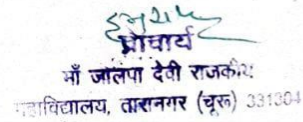 प्राचार्य
माँ जालपा देवी राजकीय
महाविद्यालय, तारानगर (चूरू) 331304